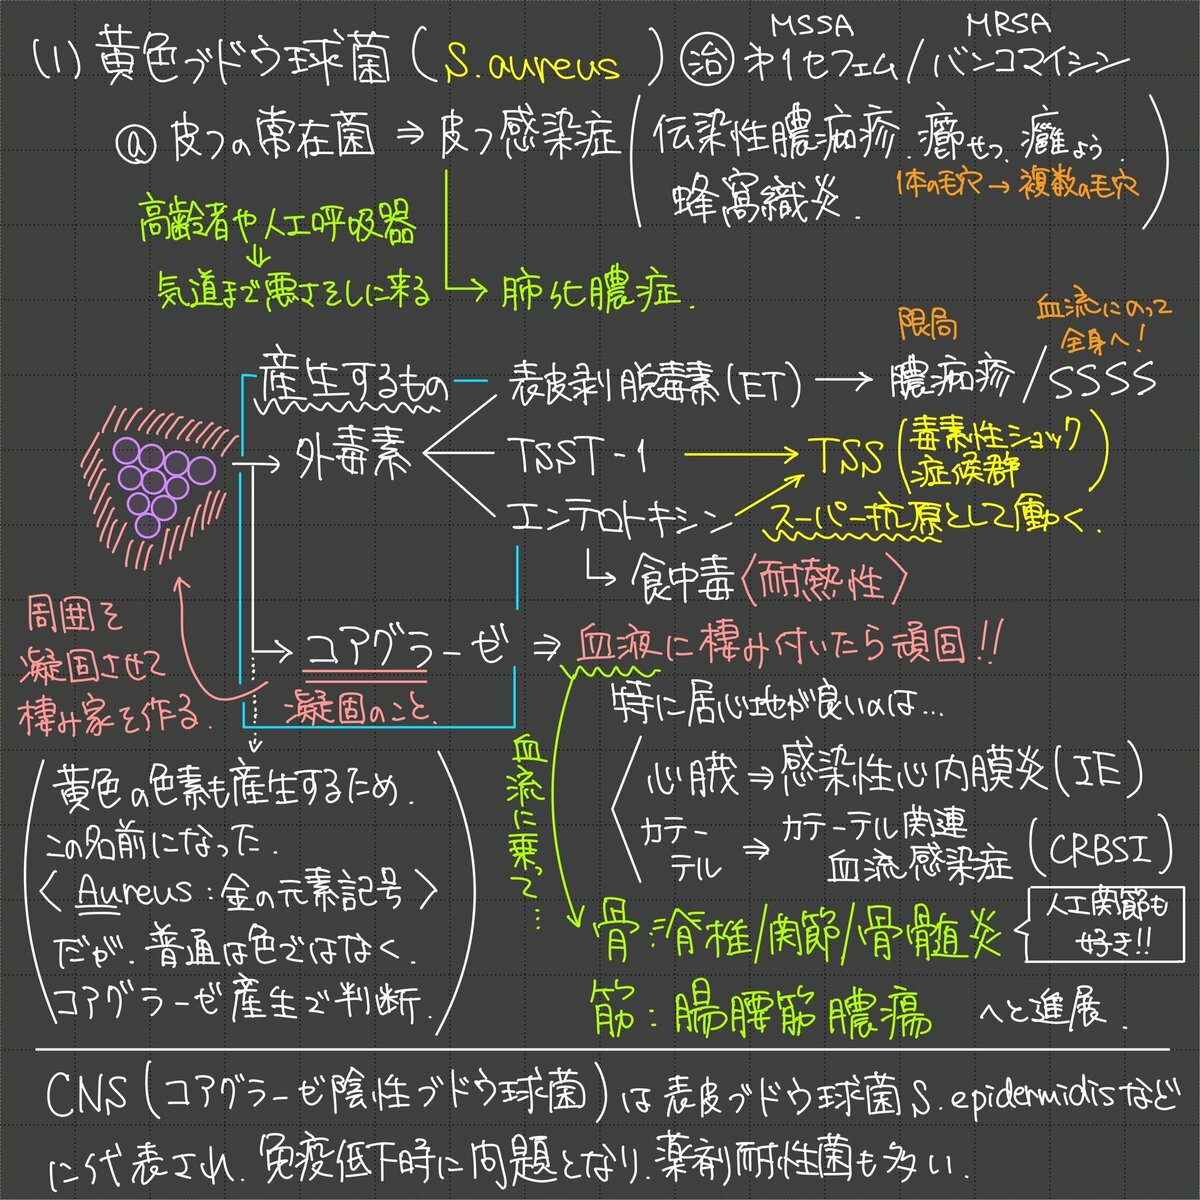 (1) 黄色ブドウ球菌 (S. aureus) 治 MSSA 才1セフェム / MRSA バンコマイシン
ⓐ 皮フの常在菌 ⇒ 皮フ感染症 (伝染性膿痂疹. 癤せつ. 癰よう.
1本の毛穴 → 複数の毛穴
蜂窩織炎.)
高齢者や人工呼吸器
⇓
気道まで悪さをしに来る → 肺化膿症.
産生するもの
外毒素
表皮剥脱毒素 (ET) → 膿痂疹 / SSSS
限局
血流にのって
全身へ!
TSST-1 → TSS (毒素性ショック
症候群)
エンテロトキシン
スーパー抗原として働く.
↳ 食中毒〈耐熱性〉
周囲を
凝固させて
棲み家を作る.
コアグラーゼ ⇒ 血液に棲み付いたら頑固!!
凝固のこと.
特に居心地が良いのは…
心臓 ⇒ 感染性心内膜炎 (IE)
カテー
テル ⇒ カテーテル関連
血流感染症 (CRBSI)
血流に乗って…
骨:脊椎/関節/骨髄炎
人工関節も
好き!!
筋:腸腰筋膿瘍 へと進展.
(黄色の色素も産生するため.
この名前になった.
〈Aureus:金の元素記号〉
だが. 普通は色ではなく.
コアグラーゼ産生で判断.)
CNS (コアグラーゼ陰性ブドウ球菌) は表皮ブドウ球菌 S. epidermidis など
に代表され. 免疫低下時に問題となり. 薬剤耐性菌も多い.